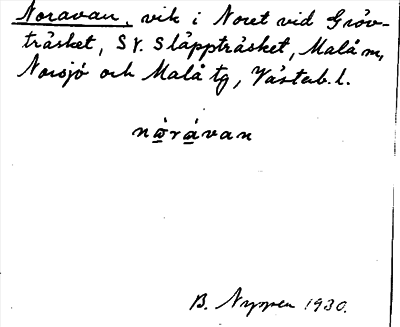 Noravan, vik i Noret vid Gröv-
träsket, SV. Släppträsket, Malå m,
Norsjö och Malå tg, Västerb. l.
nòrávan
B. Nyppen 1930.